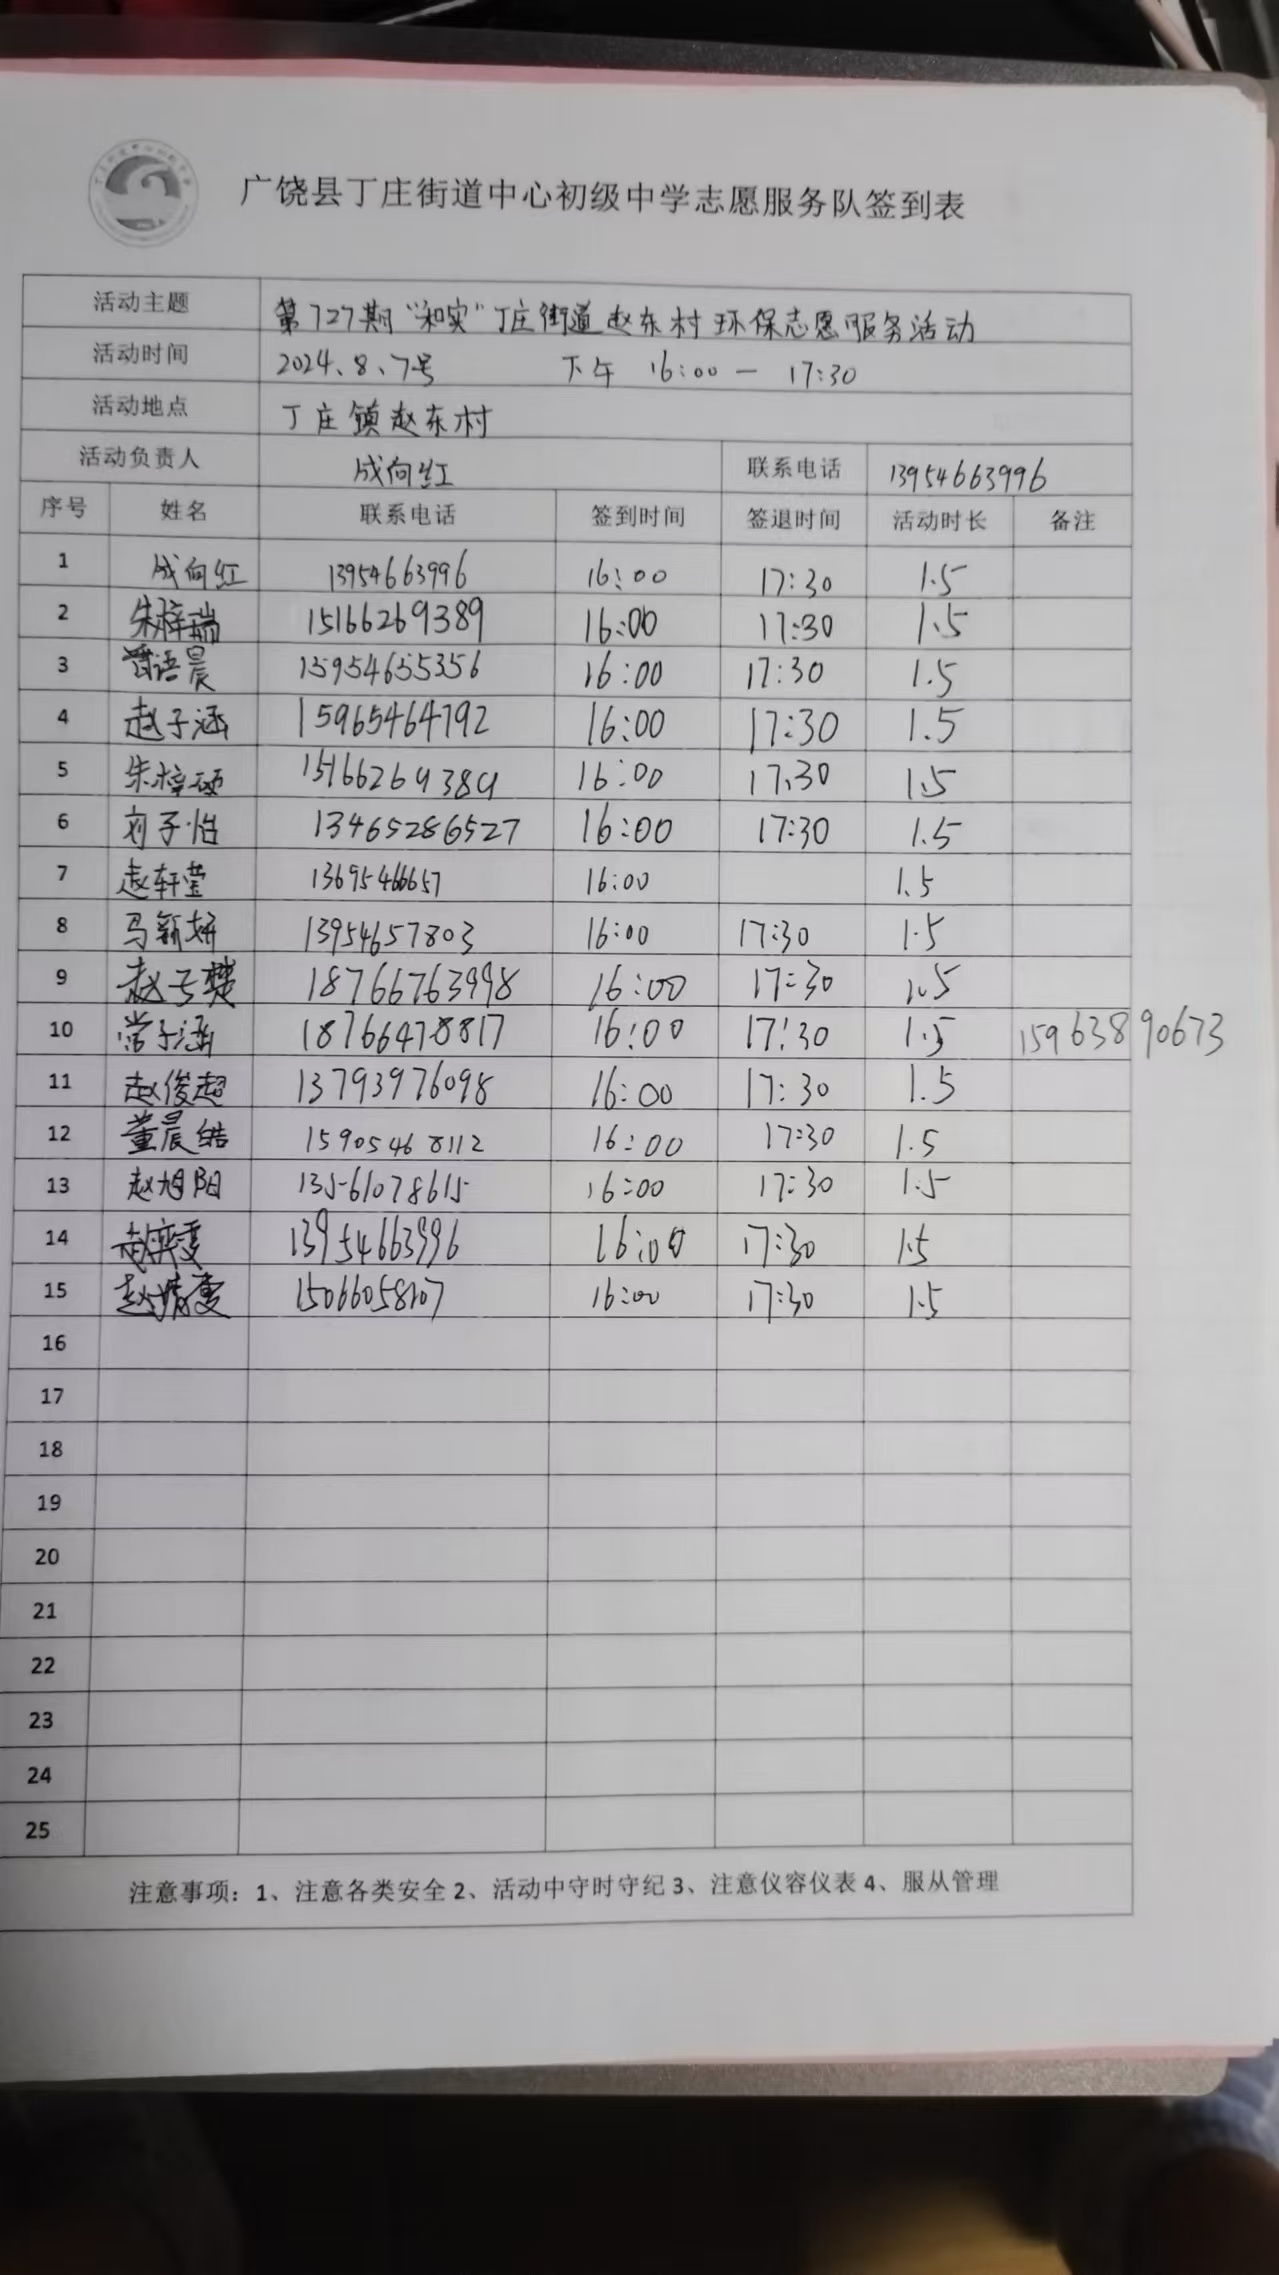 广饶县丁庄街道中心初级中学志愿服务队签到表
活动主题 第727期“和实”丁庄街道赵东村环保志愿服务活动
活动时间 2024、8、7号 下午 16:00 — 17:30
活动地点 丁庄镇赵东村
活动负责人 成向红 联系电话 13954663996
序号 姓名 联系电话 签到时间 签退时间 活动时长 备注
1 成向红 13954663996 16:00 17:30 1.5
2 朱梓瑞 15166269389 16:00 17:30 1.5
3 语晨 15954655356 16:00 17:30 1.5
4 赵子涵 15965464792 16:00 17:30 1.5
5 朱梓硕 15166269389 16:00 17:30 1.5
6 刘子怡 13465286527 16:00 17:30 1.5
7 赵轩莹 13695466657 16:00 1.5
8 马新妍 13954657803 16:00 17:30 1.5
9 赵子楚 18766763998 16:00 17:30 1.5
10 常子涵 18766478817 16:00 17:30 1.5 15963890673
11 赵俊超 13793976098 16:00 17:30 1.5
12 董晨皓 15905468112 16:00 17:30 1.5
13 赵旭阳 13561078615 16:00 17:30 1.5
14 13954663996 16:00 17:30 1.5
15 赵婧雯 15066058107 16:00 17:30 1.5
16
17
18
19
20
21
22
23
24
25
注意事项：1、注意各类安全 2、活动中守时守纪 3、注意仪容仪表 4、服从管理